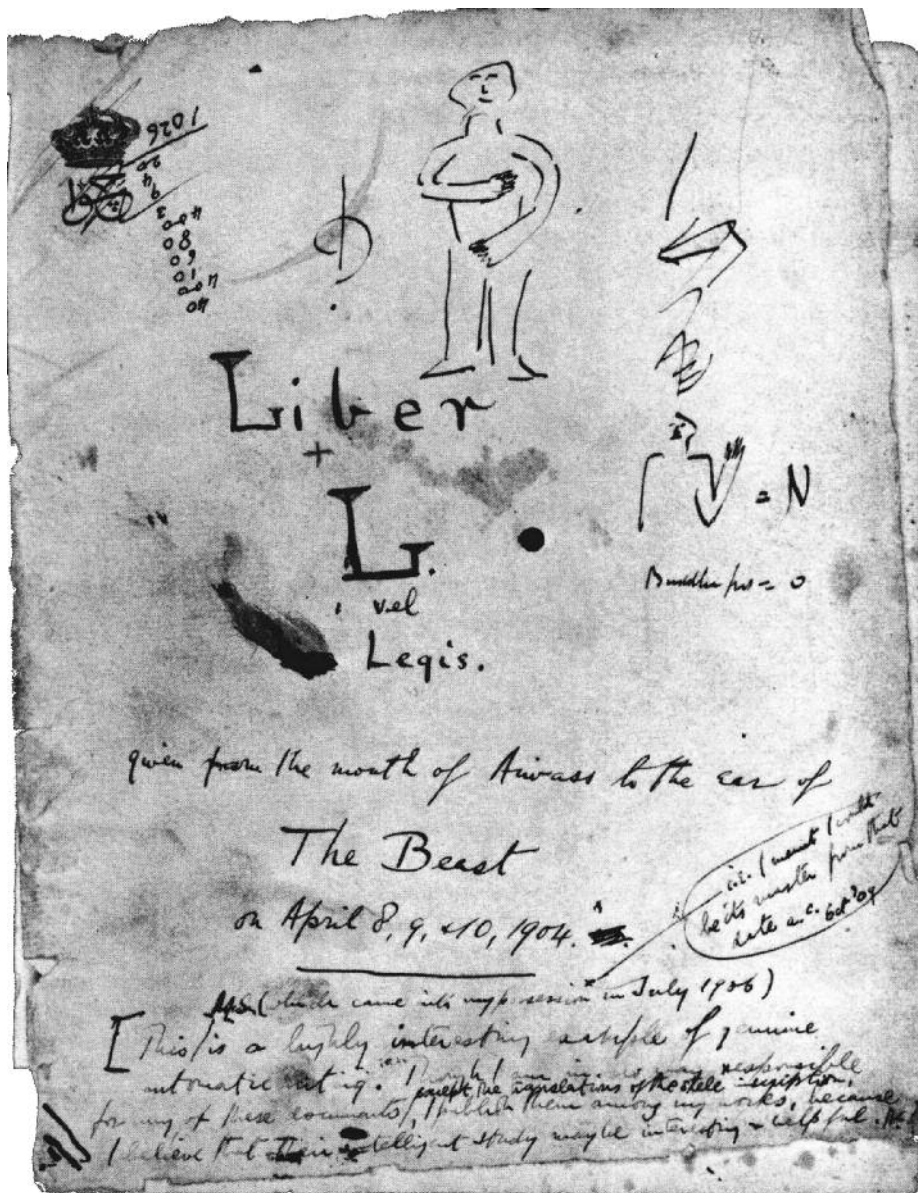 1026
20
4
9
3
400
80
60
10
400
40
Liber
+
L.
vel
Legis.
= N
= 0
given from the mouth of Aiwass to the ear of
The Beast
on April 8, 9, & 10, 1904.
i.e. I meant I would
be its master from that
date
Oct
MS (which came into my possession in July 1906)
[This is a highly interesting example of genuine
automatic writing. Though I am in no way responsible
except the translations of the stele inscription,
for any of these documents, I publish them among my works, because
I believe that their intelligent study may be interesting & helpful.